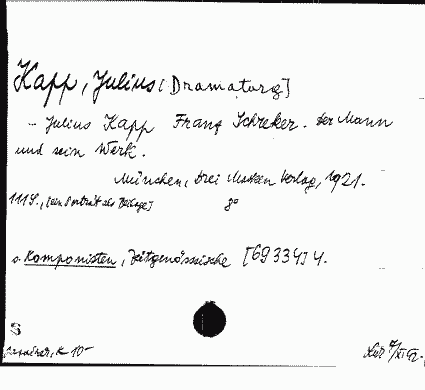 Kapp, Julius [Dramaturg]
- Julius Kapp Franz Schreker. Der Mann
und sein Werk.
München, Drei Masken Verlag, 1921.
111 S., [ein Porträt als Beilage] 8°
s. Komponisten, Zeitgenössische [69334] 4.
S
K 10-